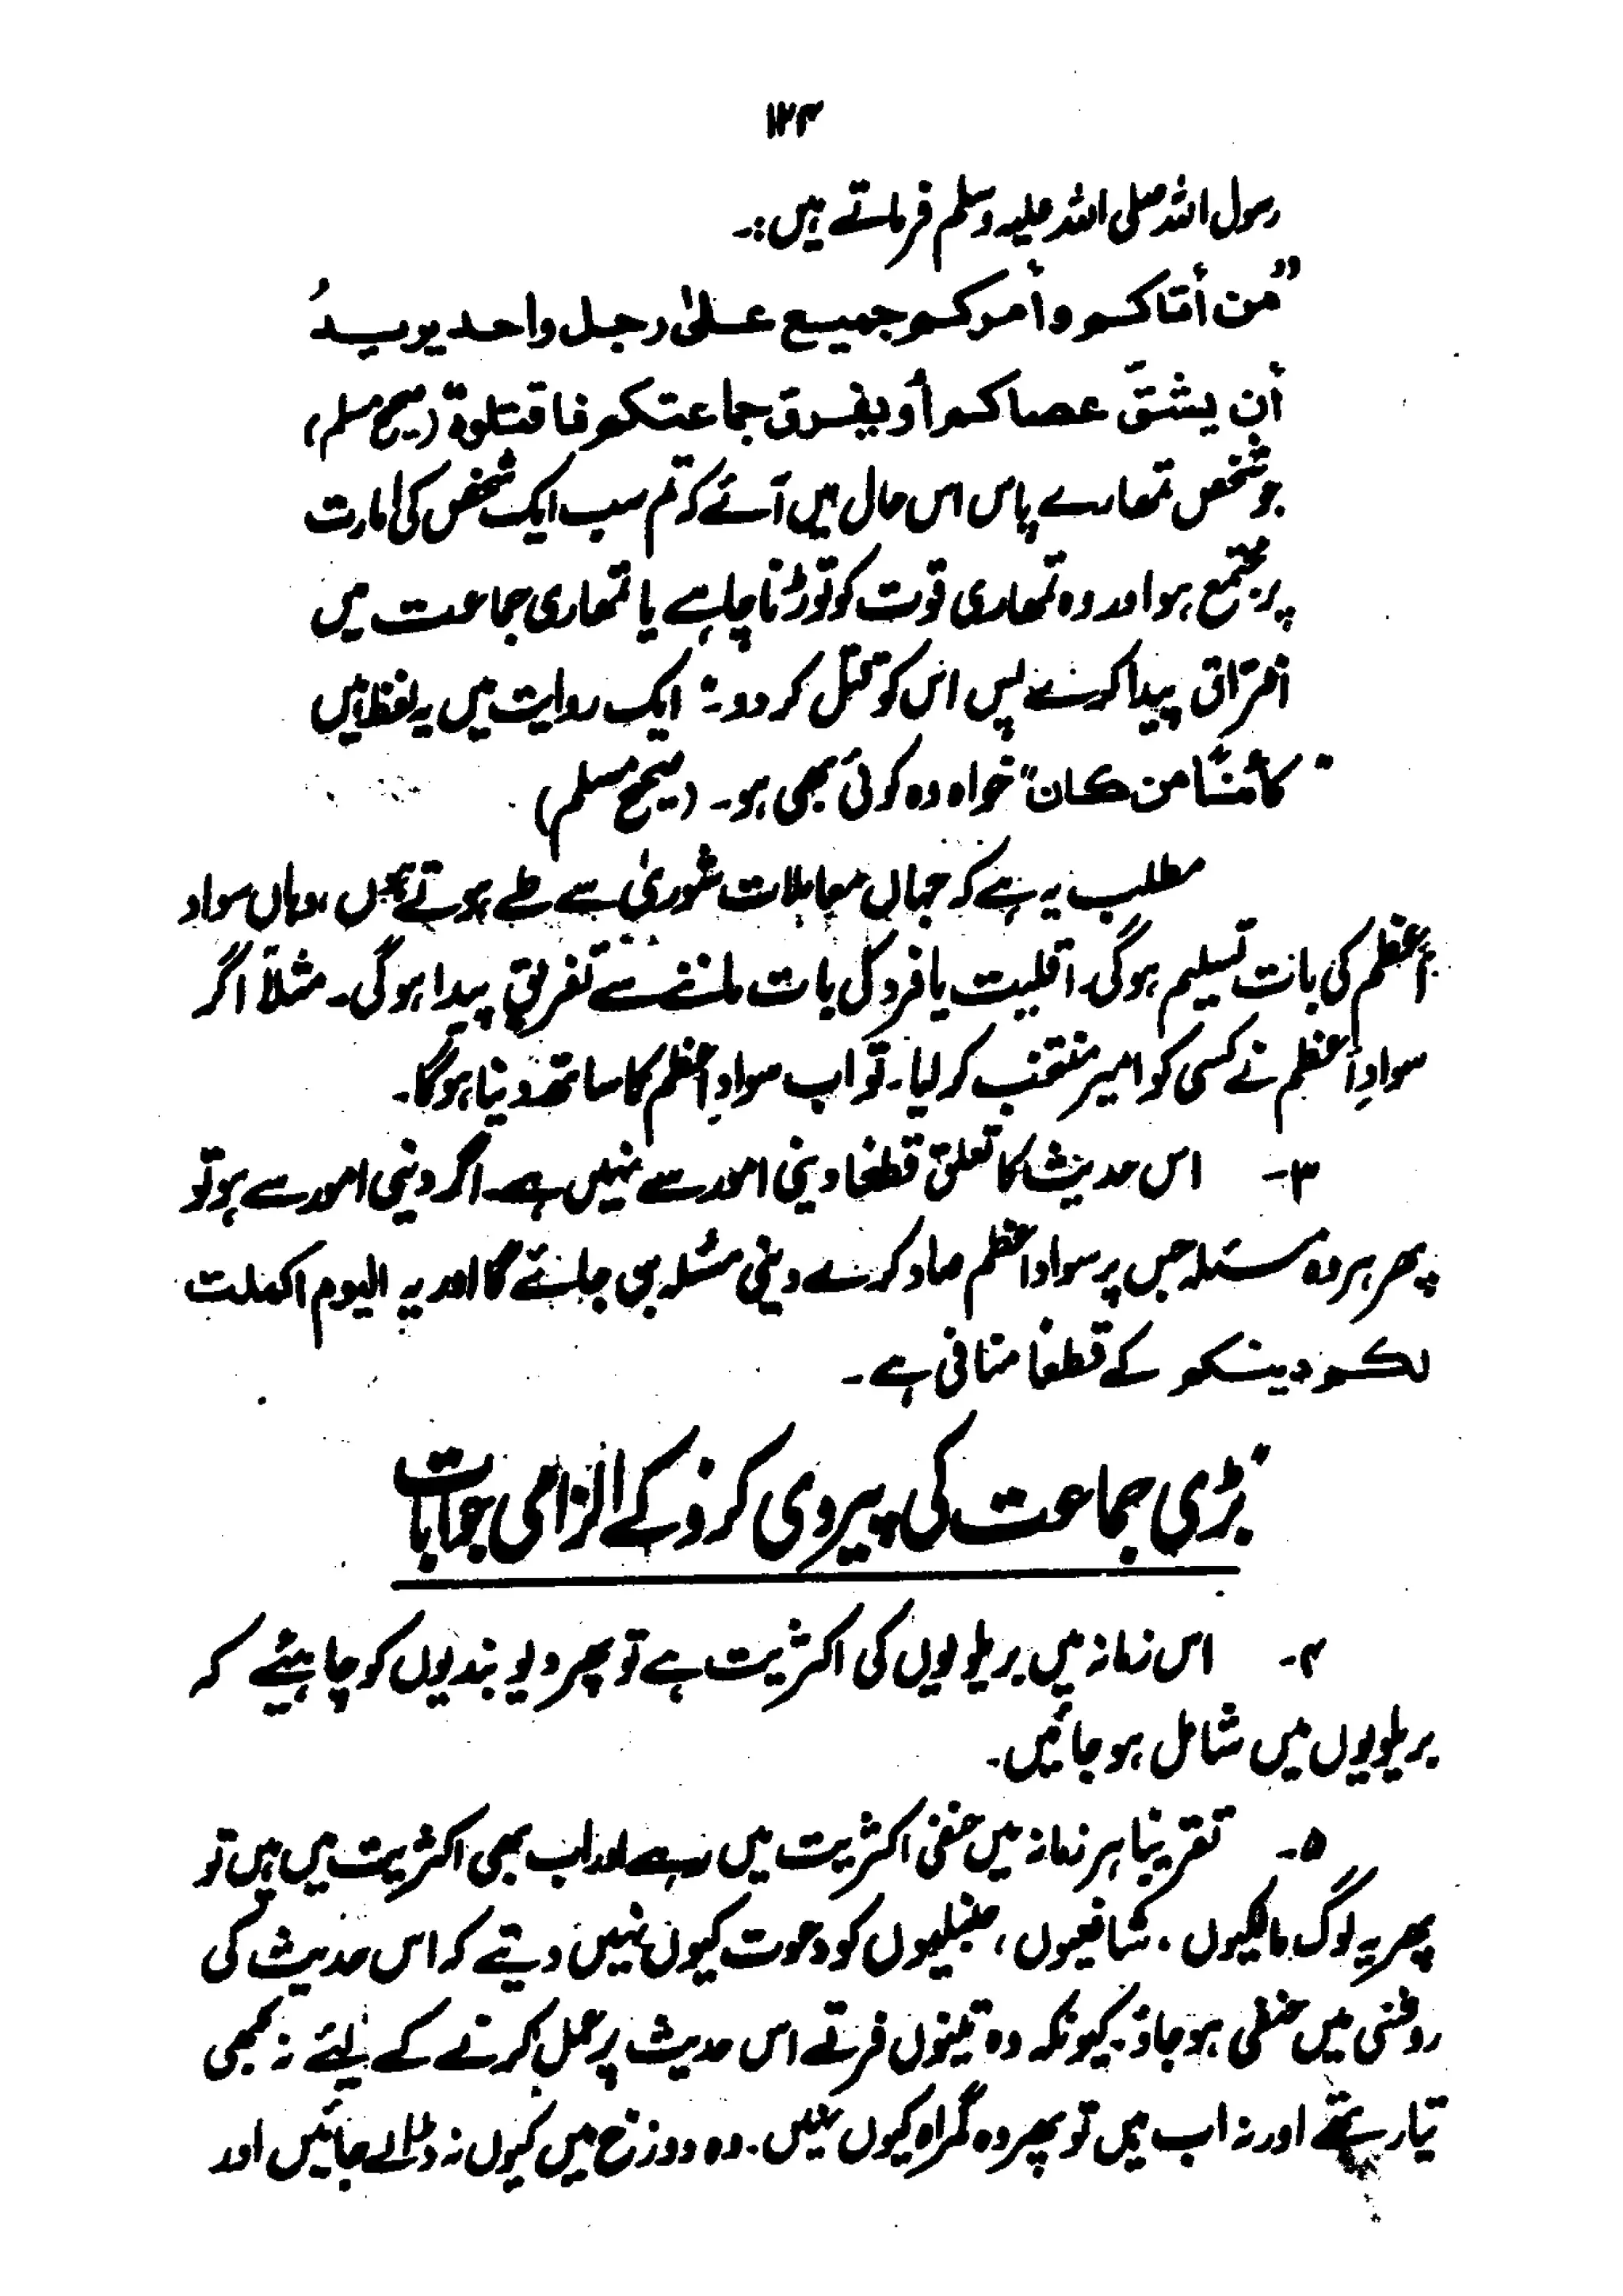 ۱۲۴
رسول اللہ صلی اللہ علیہ وسلم فرماتے ہیں:۔
”من أتاكم وأمركم جميع علىٰ رجل واحد يريدُ
أن يشقّ عصاكم أو يفرق جماعتكم فاقتلوة (صحیح مسلم)
جو شخص تمھارے پاس اس حال میں آئے کہ تم سب ایک شخص کی امارت
پر مجتمع ہو اور وہ تمھاری قوت کو توڑنا چاہے یا تمھاری جماعت میں
افتراق پیدا کرے پس اس کو قتل کر دو۔" ایک روایت میں یہ لفظ ہیں
"كائنًا من كان" خواہ وہ کوئی بھی ہو۔ (صحیح مسلم)
مطلب یہ ہے کہ جہاں معاملات شوریٰ سے طے ہوتے ہیں، وہاں سواد
أعظم کی بات تسلیم ہوگی۔ اقلیت یا فرد کی بات ماننے سے تفریق پیدا ہوگی۔ مثلاً اگر
سوادِ أعظم نے کسی کو امیر منتخب کر لیا۔ تو اب سوادِ أعظم کا ساتھ دینا ہوگا۔
۳۔ اس حدیث کا تعلق قطعًا دینی امور سے نہیں ہے۔ اگر دینی امور سے ہو تو
پھر ہر وہ مسئلہ جس پر سواد اعظم صاد کرے دینی مسئلہ بن جائے گا اور یہ الیوم اکملت
لکم دینکم کے قطعًا منافی ہے۔
"بڑی جماعت کی پیروی کرو" کے الزامی جوابات
۴۔ اس زمانہ میں بریلویوں کی اکثریت ہے تو پھر دیوبندیوں کو چاہئیے کہ
بریلویوں میں شامل ہو جائیں۔
۵۔ تقریبًا ہر زمانہ میں حنفی اکثریت میں رہے اور اب بھی اکثریت میں ہیں تو
پھر یہ لوگ مالکیوں، شافعیوں، حنبلیوں کو دعوت کیوں نہیں دیتے کہ اس حدیث کی
روشنی میں حنفی ہو جاؤ۔ کیونکہ وہ تینوں فرقے اس حدیث پر عمل کرنے کے لئے نہ کبھی
تیار تھے اور نہ اب ہیں تو پھر وہ گمراہ کیوں نہیں۔ وہ دوزخ میں کیوں نہ ڈالے جائیں اور